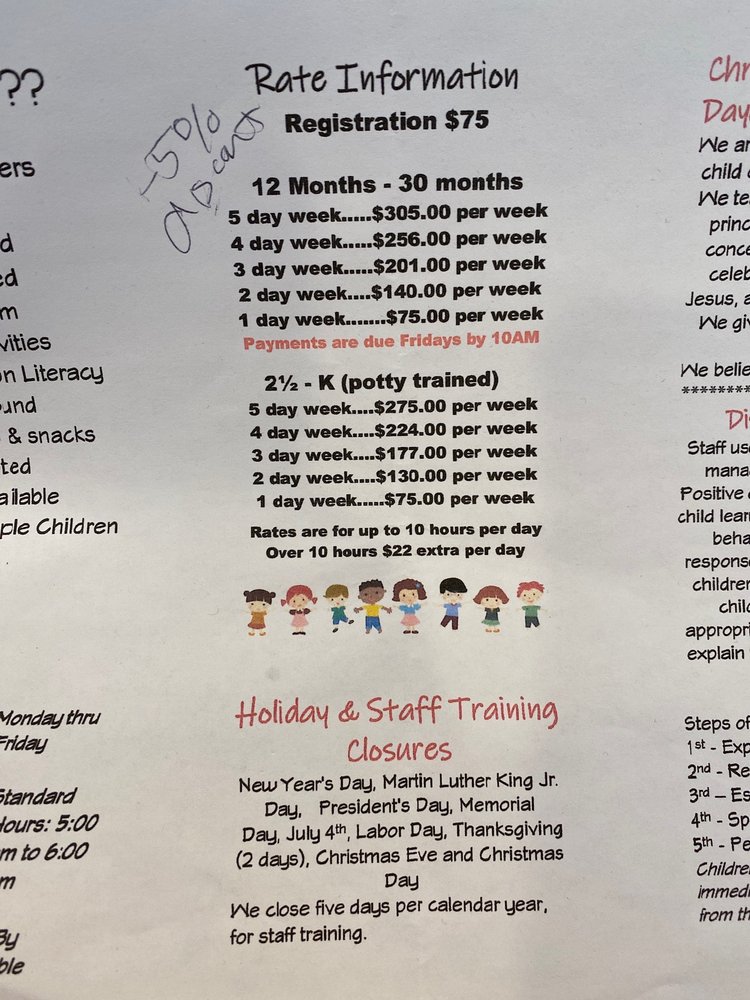 ??
ers
d
ed
m
vities
on Literacy
ound
& snacks
ted
ailable
ple Children
Monday thru
Friday
Standard
Hours: 5:00
m to 6:00
m
By
ble
Rate Information
-5%
Registration $75
12 Months - 30 months
5 day week.....$305.00 per week
4 day week.....$256.00 per week
3 day week.....$201.00 per week
2 day week.....$140.00 per week
1 day week.......$75.00 per week
Payments are due Fridays by 10AM
2½ - K (potty trained)
5 day week....$275.00 per week
4 day week....$224.00 per week
3 day week....$177.00 per week
2 day week....$130.00 per week
1 day week.....$75.00 per week
Rates are for up to 10 hours per day
Over 10 hours $22 extra per day
Holiday & Staff Training
Closures
New Year's Day, Martin Luther King Jr.
Day, President's Day, Memorial
Day, July 4th, Labor Day, Thanksgiving
(2 days), Christmas Eve and Christmas
Day
We close five days per calendar year,
for staff training.
Chr
Day
We ar
child c
We te
princ
conce
celeb
Jesus, a
We giv
We belie
********
Di
Staff us
mana
Positive
child lear
beha
respons
children
chil
appropri
explain
Steps of
1st - Exp
2nd - Re
3rd – Es
4th - Sp
5th - Pe
Childre
immedi
from th